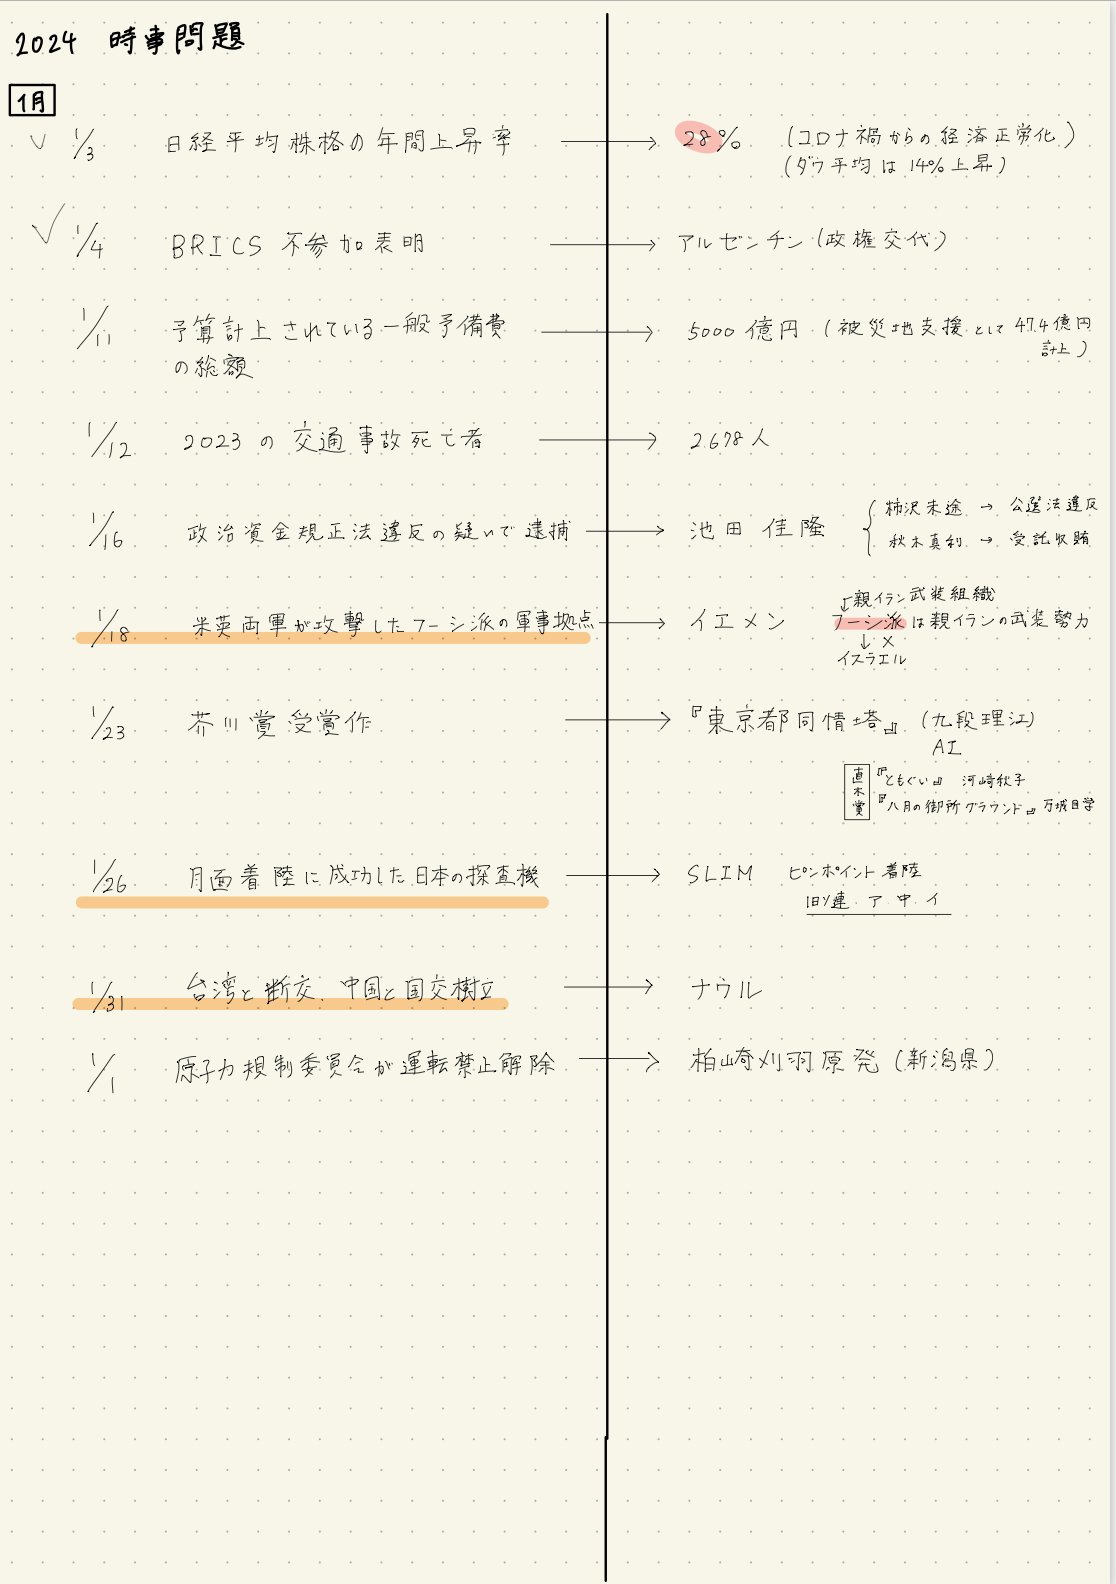 2024 時事問題
1月
1/3 日経平均株格の年間上昇率 → 28% (コロナ禍からの経済正常化)
(ダウ平均は14%上昇)
1/4 BRICS 不参加表明 → アルゼンチン (政権交代)
1/11 予算計上されている一般予備費 → 5000億円 (被災地支援として 47.4億円
の総額
計上)
1/12 2023の交通事故死亡者 → 2678人
1/16 政治資金規正法違反の疑いで逮捕 → 池田佳隆
柿沢未途 → 公選法違反
秋本真利 → 受託収賄
親イラン武装組織
1/18 米英両軍が攻撃したフーシ派の軍事拠点 → イエメン フーシ派は親イランの武装勢力
↓ ×
イスラエル
1/23 芥川賞受賞作 → 『東京都同情塔』 (九段理江)
AI
直木賞
『ともぐい』 河﨑秋子
『八月の御所グラウンド』 万城目学
1/26 月面着陸に成功した日本の探査機 → SLIM ピンポイント着陸
旧ソ連. ア. 中. イ
1/31 台湾と断交. 中国と国交樹立 → ナウル
1/1 原子力規制委員会が運転禁止解除 → 柏崎刈羽原発 (新潟県)